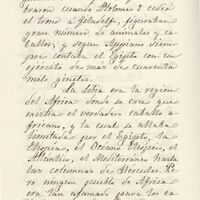 graron cuando Ptolomeo I cedió
el trono a Filadelfo, figuraban
gran número de animales y ca-
ballos, y segun Appiano siem-
pre contaba el Egipto con un
ejército de mas de cuarenta
mil ginetes.
La Libia era la región
del Africa donde se cree que
existia el verdadero caballo a-
fricano, y la cual se hallaba
limitada por el Egipto, la
Etiopia, el Oceano
Atlantico, el Mediterraneo hasta
las columnas de Hercules. Pe-
ro ningun pueblo de Africa
era tan afamado para los ca-